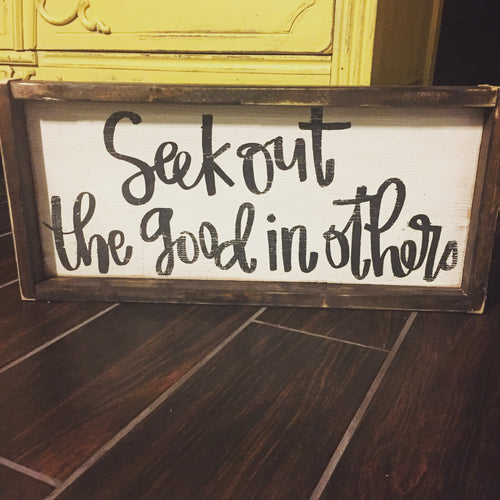 Seek out
the good in others